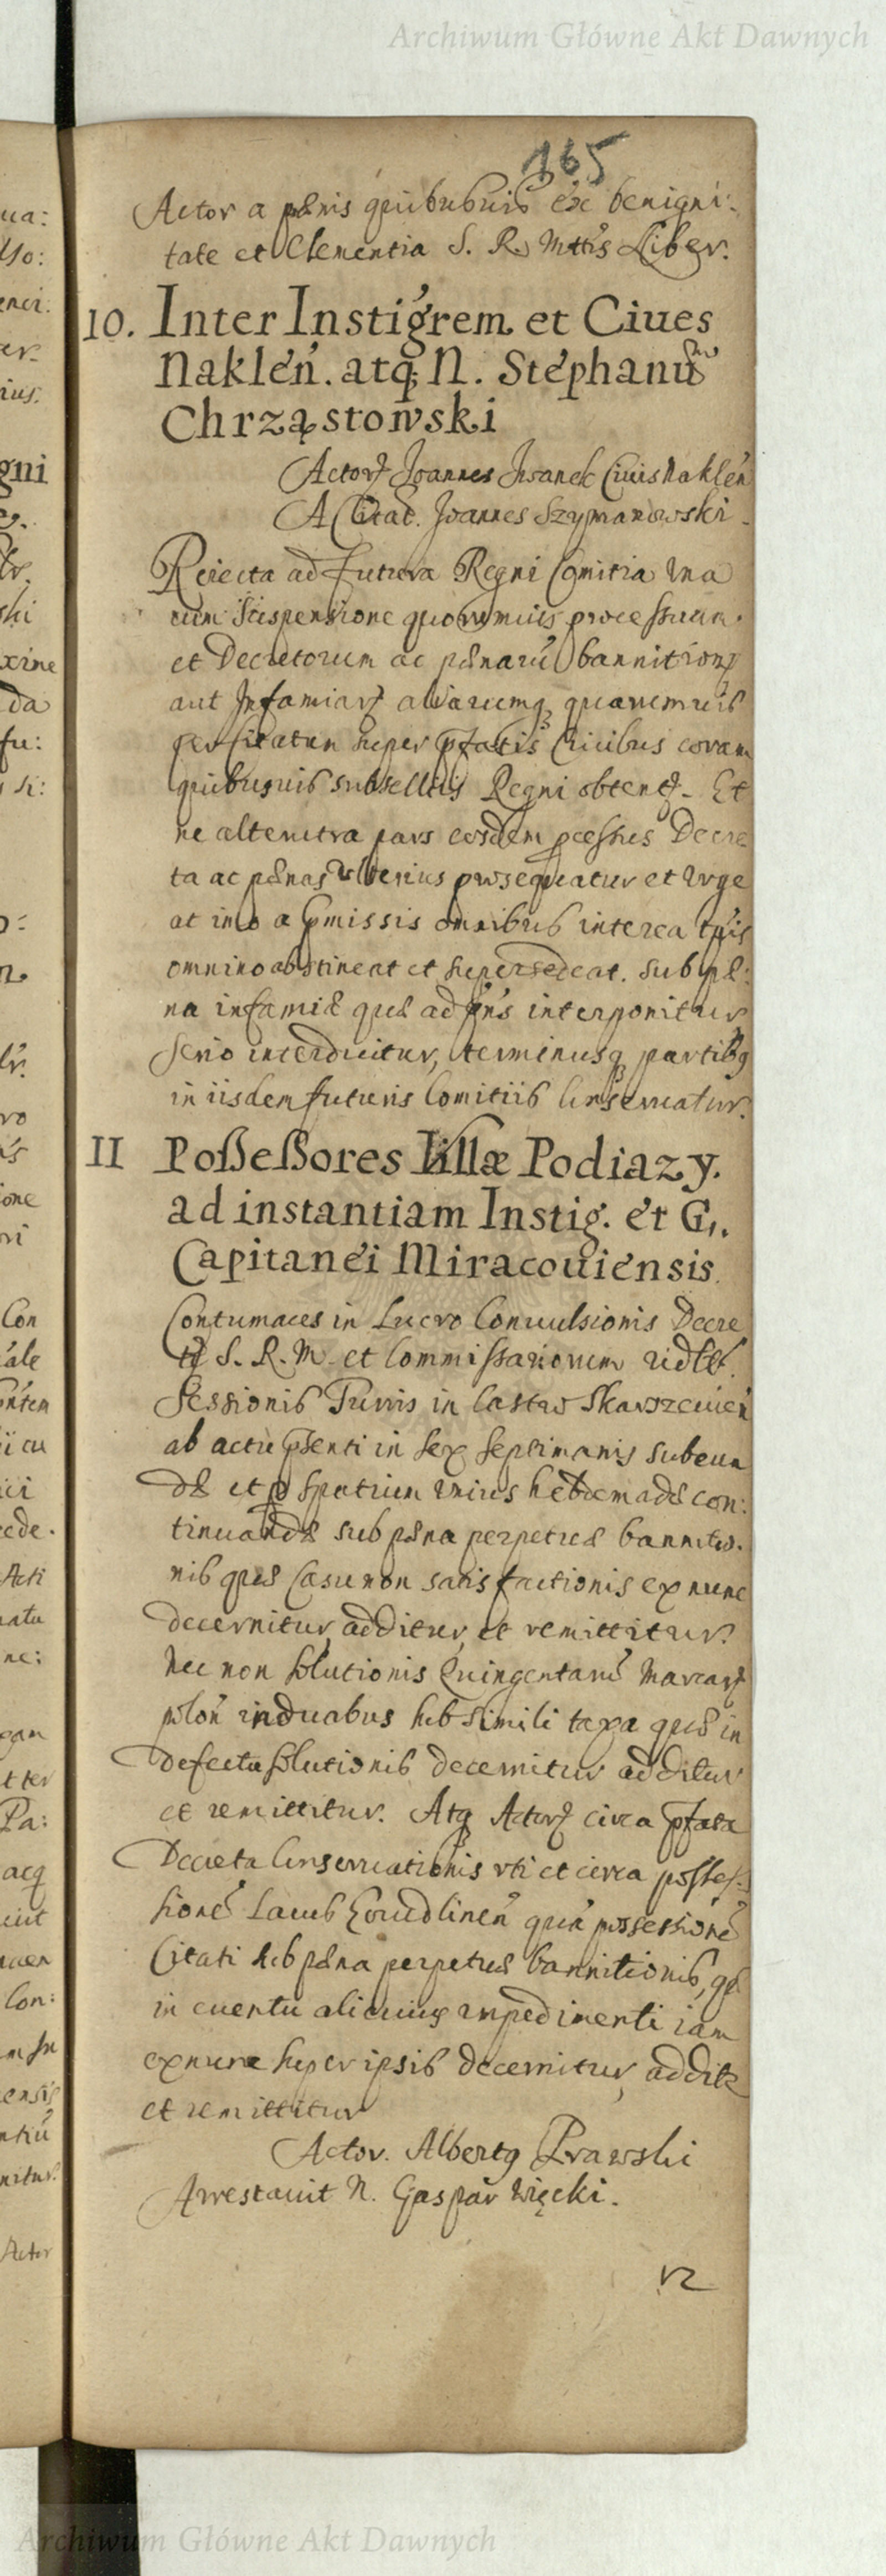 Archiwum Główne Akt Dawnych
165
Actor a pænis quibusuis ex benigni:
tate et Clementia S. R. Mttis Liber.
10. Inter Instigrem et Ciues
Naklen̄. atq; N. Stephanū
Chrząstowski
Actor Joannes Civis Naklen̄
A Citat. Joannes Szymanowski
Reiecta ad futura Regni Comitia una
cum suspensione quorumuis processuum
et Decretorum ac pænarū bannition
aut Infamiar aliarumq quarumuis
per Citatum super pfatis Ciuibus coram
quibusuis subselliis Regni obtent. Et
ne altenitra pars eosdem pcessus Decre
ta ac pænas ulterius prosequatur et urge
at imo a pmissis omnibus interea tpis
omnino abstineat et supersedeat. sub pæ:
na infamiæ quæ ad pn̄s interponitur
serio interdicitur, terminusq partibq
in iisdem futuris Comitiis Conseruatur.
II Poßeßores Villæ Podiazy.
ad instantiam Instig. et G.
Capitanei Miracouiensis.
Contumaces in Lucro Conuulsionis Decre
S. R. M. et Commissariorum
Sessionis Turris in Castro Skarszeuien̄
ab actu psenti in sex septimanis subeun
dæ et p spatium unius hebdomadæ con:
tinuandæ sub pæna perpetuæ bannitio.
nis quæ Casu non satisfactionis ex nunc
decernitur, additur, et remittitur.
Nec non solutionis Quingentarū Marcar
polon̄ in duabus sub simili taxa quæ in
defectu solutionis decernitur additur
et remittitur. Atq Actor circa pfata
Decreta Conseruationis uti et circa posses
sionē Lacus quā possessionē
Citati sub pæna perpetuæ bannitionis, qæ
in euentu alicuius impedimenti iam
exnunc super ipsis decernitur, addit
et remittitur
Actor. Albertq Prawski
Arrestauit N. Gaspar Więcki.
12
Archiwum Główne Akt Dawnych